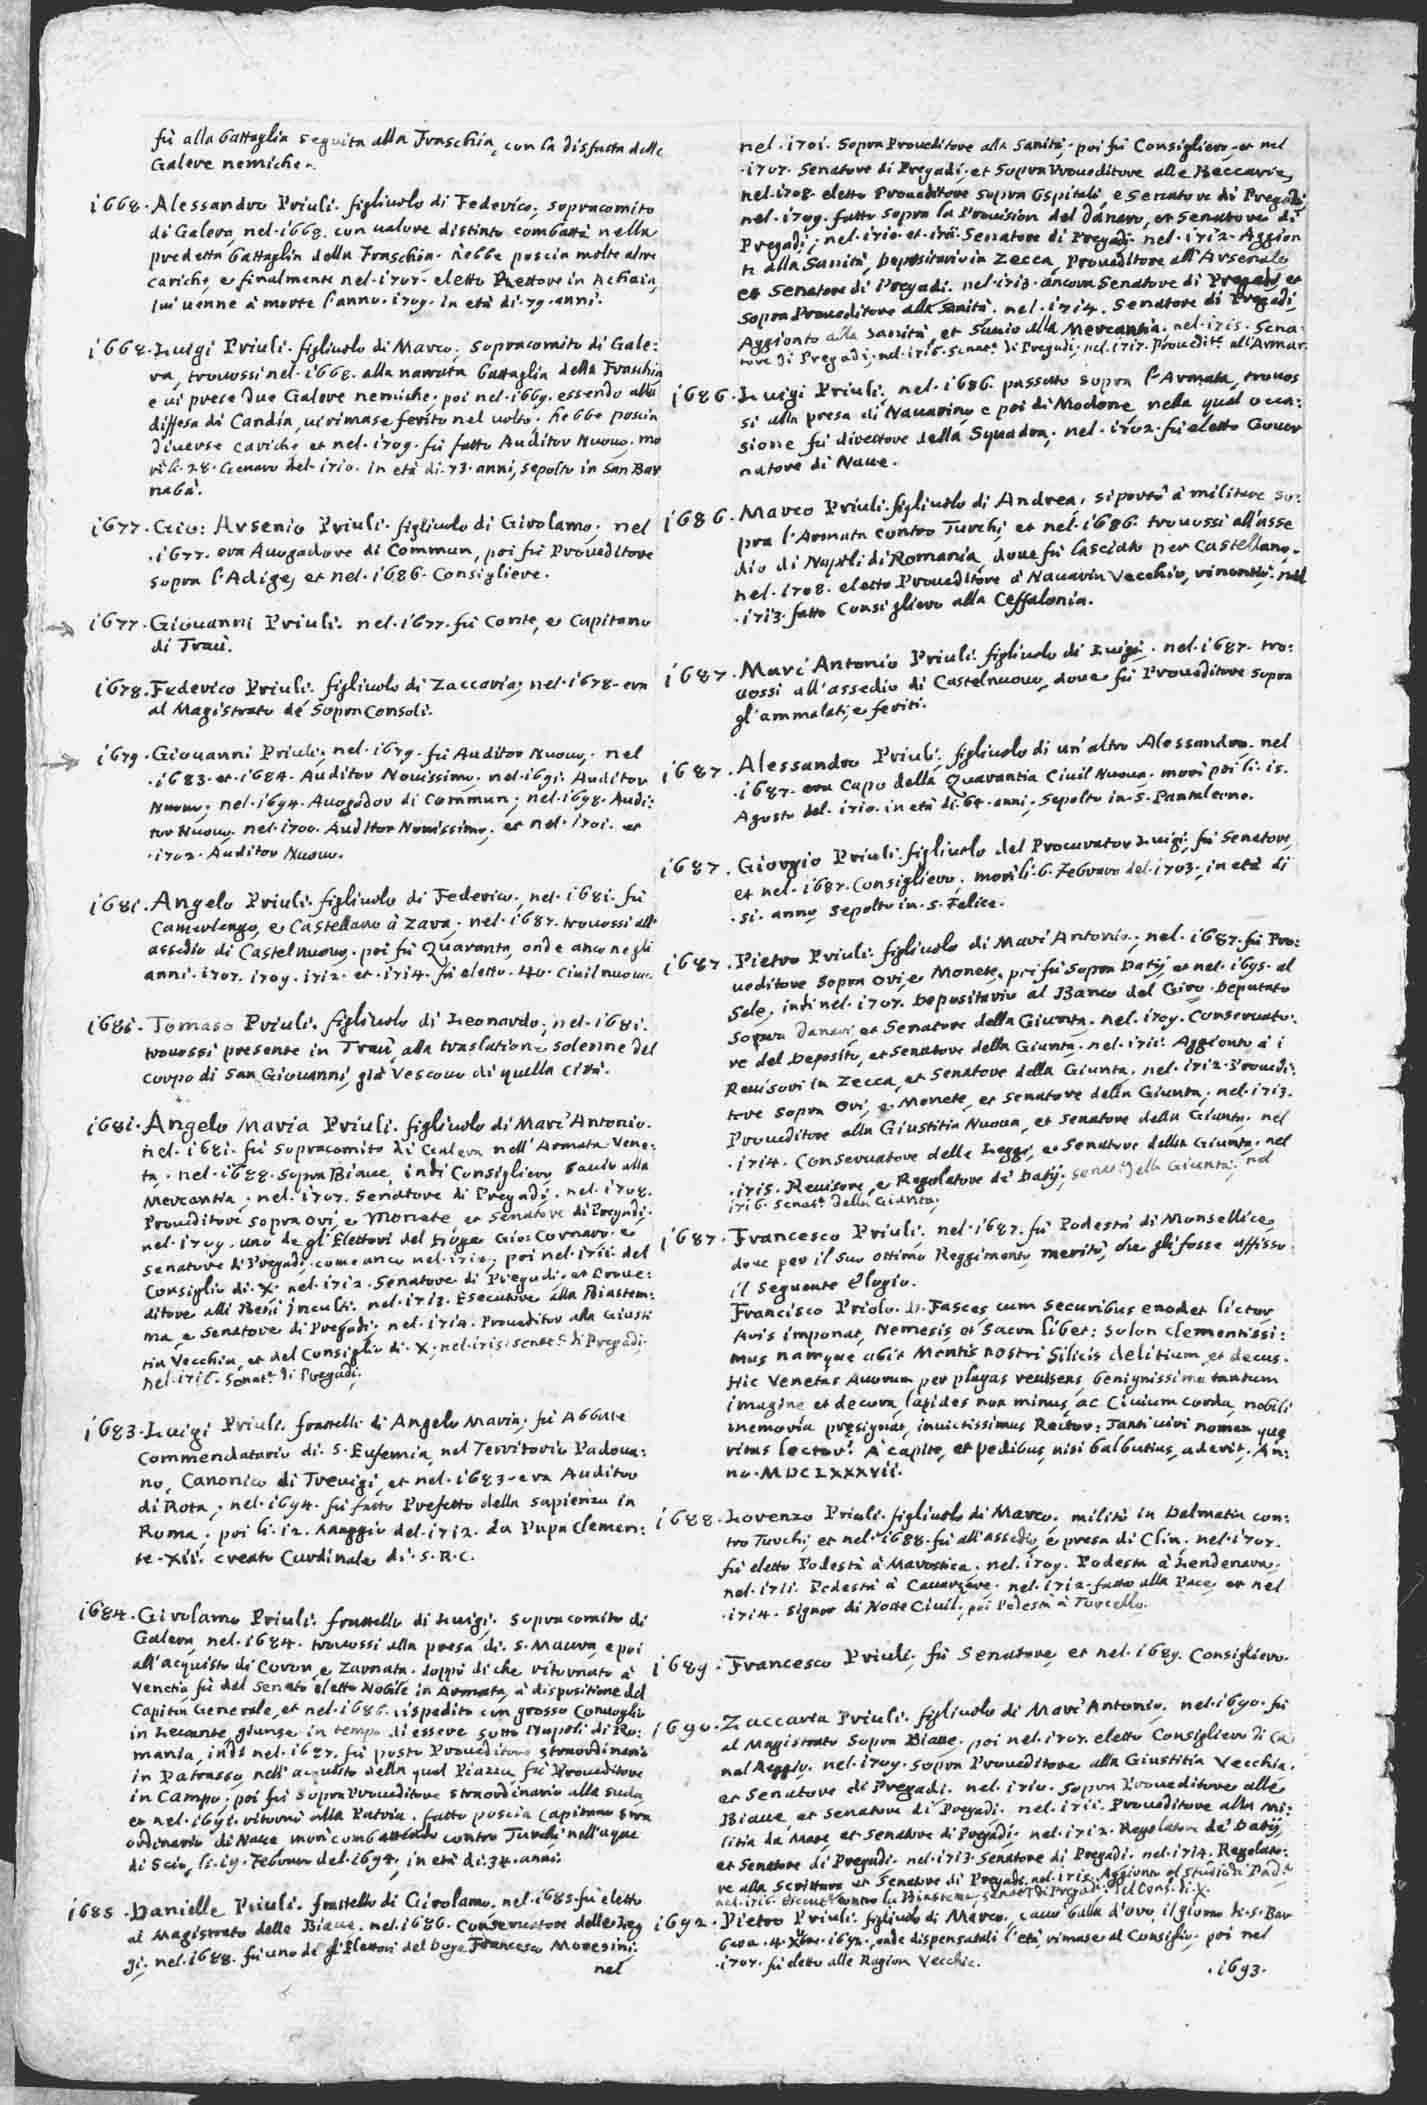 fù alla battaglia seguita alla Fraschia, con la disfatta delle
Galere nemiche.
1668. Alessandro Priuli. figliuolo di Federico, sopracomito
di Galera, nel. 1668. con ualore distinto combattè nella
predetta battaglia della Fraschia. hebbe poscia molte altre
cariche, e finalmente nel. 1707. eletto Rettore in Achaia,
iui uenne à morte l'anno. 1709. in età di. 79. anni.
1668. Luigi Priuli. figliuolo di Marco, sopracomito di Gale:
ra, trouossi nel. 1668. alla narrata battaglia della Fraschia
e ui prese due Galere nemiche. poi nel. 1669. essendo alla
diffesa di Candia, ui rimase ferito nel uolto. hebbe poscia
diuerse cariche et nel. 1709. fù fatto Auditor Nuouo. mo
rì li. 28. Genaro del. 1710. in età di. 73. anni, sepolto in San Bar
nabà.
1677. Gio: Arsenio Priuli. figliuolo di Girolamo, nel
.1677. era Auogadore di Commun, poi fù Proueditore
sopra l'Adige, et nel. 1686. Consigliere.
1677. Giouanni Priuli. nel. 1677. fù Conte, e Capitano
di Traù.
1678. Federico Priuli. figliuolo di Zaccaria, nel. 1678. era
al Magistrato de' Sopra Consoli.
1679. Giouanni Priuli, nel. 1679. fù Auditor Nuouo. nel
.1683. et. 1684. Auditor Nouissimo. nel. 1691. Auditor
Nuouo, nel. 1694. Auogador di Commun, nel. 1698. Audi:
tor Nuouo. nel. 1700. Auditor Nouissimo, et nel. 1701. et
.1702. Auditor Nuouo.
1681. Angelo Priuli. figliuolo di Federico, nel. 1681. fù
Camerlengo, e Castellano à Zara. nel. 1687. trouossi all'
assedio di Castelnuouo. poi fù Quaranta, onde anco negli
anni. 1707. 1709. 1712. et. 1714. fù eletto. 40. Ciuil nuouo.
1681. Tomaso Priuli. figliuolo di Leonardo, nel. 1681.
trouossi presente in Traù, alla traslatione solenne del
corpo di San Giouanni, già Vescouo di quella Città.
1681. Angelo Maria Priuli. figliuolo di Marc'Antonio.
nel. 1681. fù sopracomito di Galera nell'Armata Vene:
ta. nel. 1688. sopra Biaue, indi Consigliero, Sauio alla
Mercantia, nel. 1707. Senatore di Pregadi. nel. 1708.
Proueditore sopra Ori, e Monete, et Senatore di Pregadi.
nel. 1709. uno de gl'Elettori del Doge Gio: Cornaro, e
senatore di Pregadi, come anco nel. 1710, poi nel. 1711. del
Consiglio di. X. nel. 1712. Senatore di Pregadi, et Proue:
ditore alli Beni inculti. nel. 1713. Esecutore alla Biastem:
ma, e Senatore di Pregadi. nel. 1714. Proueditor alla Giusti
tia Vecchia, et del Consiglio di. X. nel. 1715. Senat.e di Pregadi.
nel. 1716. Senat.e di Pregadi.
1683. Luigi Priuli. fratello di Angelo Maria, fù Abbate
Commendatario di. S. Eufemia, nel Territorio Padoua:
no, Canonico di Treuigi, et nel. 1683. era Auditor
di Rota, nel. 1694. fù fatto Prefetto della sapienza in
Roma, poi li. 12. Maggio del. 1712. da Papa Clemen:
te. XII. creato Cardinale di. S. R. C.
1684. Girolamo Priuli. fratello di Luigi, sopracomito di
Galera, nel. 1684. trouossi alla presa di. S. Maura, e poi
all'acquisto di Coron, e Zarnata. doppò di che ritornato à
Venetia fù dal Senato eletto Nobile in Armata, à dispositione del
Capitan Generale, et nel. 1686. ispedito con grosso Conuoglio
in Leuante, giunse in tempo di essere sotto Napoli di Ro:
mania, indi nel. 1687. fù posto Proueditore straordinario
in Patrasso, nell'acquisto della qual Piazza, fù Proueditore
in Campo, poi fù sopra Proueditore straordinario alla suda
et nel. 1691. ritornò alla Patria. fatto poscia Capitano stra
ordinario di Naue morì combattendo contro Turchi nell'aque
di Scio, li. 19. Febraro del. 1694. in età di. 34. anni.
1685. Danielle Priuli. fratello di Girolamo. nel. 1685. fù eletto
al Magistrato delle Biaue, nel. 1686. Conseruatore delle Leg
gi, nel. 1688. fù uno de gl'Elettori del Doge Francesco Moresini.
nel
nel. 1701. Sopra Proueditore alla Sanità, poi fù Consigliero, et nel
.1707. Senatore di Pregadi, et Sopra Proueditore alle Beccarie,
nel. 1708. eletto Proueditore sopra Ospitali, e Senatore di Pregadi,
nel. 1709. fatto sopra la Prouision del danaro, et Senatore di
Pregadi, nel. 1710. et. 1711. Senatore di Pregadi. nel. 1712. Aggion
to alla Sanità, Depositario in Zecca, Proueditore all'Arsenale
et Senatore di Pregadi. nel. 1713. ancora Senatore di Pregadi, et
Sopra Proueditore alla Sanità. nel. 1714. Senatore di Pregadi
Aggionto alla Sanità, et Sauio alla Mercantia. nel. 1715. Sena:
tore di Pregadi, nel. 1716. Senat.e di Pregadi, nel. 1717. Prouedit.e all'Armar
1686. Luigi Priuli, nel. 1686. passato sopra l'Armata, trouos
si alla presa di Nauarino, e poi di Modone, nella qual occa:
sione fù direttore della Squadra, nel. 1702. fù eletto Gouer
natore di Naue.
1686. Marco Priuli. figliuolo di Andrea, si portò à militare so:
pra l'Armata contro Turchi, et nel. 1686. trouossi all'asse
dio di Napoli di Romania, doue fù lasciato per Castellano.
nel. 1708. eletto Proueditore à Nauarin Vecchio, rinontiò. nel
.1713. fatto Consigliero alla Ceffalonia.
1687. Marc'Antonio Priuli. figliuolo di Luigi. nel. 1687. tro:
uossi all'assedio di Castelnuouo, doue fù Proueditore sopra
gl'ammalati, e feriti.
1687. Alessandro Priuli, figliuolo di un'altro Alessandro, nel
.1687. era Capo della Quarantia Ciuil Nuoua. morì poi li. 15.
Agosto del. 1710. in età di. 64. anni, sepolto in. S. Pantaleone.
1687. Giorgio Priuli. figliuolo del Procurator Luigi, fù Senatore,
et nel. 1687. Consigliero, morì li. 6. Febraro del. 1703, in età di
.51. anno sepolto in. S. Felice.
1687. Pietro Priuli. figliuolo di Marc'Antonio, nel. 1687. fù Pro:
ueditore sopra Ori, e Monete, poi fù sopra Datij, et nel. 1695. al
Sale, indi nel. 1707. Depositario al Banco del Giro. Deputato
sopra danari, et Senatore della Giunta. nel. 1709. Conseruato:
re del Deposito, et Senatore della Giunta. nel. 1711. Aggionto à i
Reuisori in Zecca, et Senatore della Giunta. nel. 1712. Prouedi:
tore sopra Ori, e Monete, et Senatore della Giunta, nel. 1713.
Proueditore alla Giustitia Nuoua, et Senatore della Giunta. nel
.1714. Conseruatore delle Leggi, e Senatore della Giunta, nel
.1715. Reuisore, e Regolatore de' Datij, senat.e della Giunta, nel
1716. Senat.e della Giunta.
1687. Francesco Priuli, nel. 1687. fù Podestà di Monselice,
doue per il suo ottimo Reggimento meritò, che gli fosse affisso
il seguente Elogio.
Francisco Priolo. Fasces cum securibus enodet lictor,
Auis imponat, Nemesis et sacra libet: Solon clementissi:
mus namque abit Mentis nostri Silicis delitium, et decus.
Hic Venetas Auorum per plagas reuisens, benignissima tantum
imagine et decora lapides non minus, ac Ciuium corda, nobili
memoria presignat, inuictissimus Rector: Tanti uiri nomen que
ritas lector? A capite, et pedibus, nisi balbutius, aderit. An:
no. MDCLXXXVII.
1688. Lorenzo Priuli. figliuolo di Marco. militò in Dalmatia con:
tro Turchi, et nel. 1688. fù all'assedio, e presa di Clin. nel. 1707.
fù eletto Podestà à Marostica. nel. 1709. Podestà à Lendenara,
nel. 1711. Podestà à Cauarzere. nel. 1712. fatto alla Pace, et nel
.1714. Signor di Notte Ciuil, poi Podestà à Torcello.
1689. Francesco Priuli, fù Senatore, et nel. 1689. Consigliero.
1690. Zaccaria Priuli. figliuolo di Marc'Antonio. nel. 1690. fù
al Magistrato sopra Biaue. poi nel. 1707. eletto Consigliero di Ca
nal Reggio. nel. 1709. sopra Proueditore alla Giustitia Vecchia,
et Senatore di Pregadi. nel. 1710. sopra Proueditore alle
Biaue, et Senatore di Pregadi. nel. 1711. Proueditore alla mi:
litia da Mare, et Senatore di Pregadi. nel. 1712. Regolatore de' Datij,
et Senatore di Pregadi. nel. 1713. Senatore di Pregadi. nel. 1714. Regolato:
re alla Scrittura et Senatore di Pregadi. nel. 1715. Aggionto al Studio di Pad.a
nel. 1716. contro la Biastema, senat. di Pregadi, del Cons. di. X.
1692. Pietro Priuli. figliuolo di Marco, cauò balla d'oro, il giorno di. S. Bar
bara. 4. Xbre. 1692. onde dispensatali l'età, rimase al Consiglio. poi nel
.1707. fù eletto alle Ragion Vecchie.
.1693.